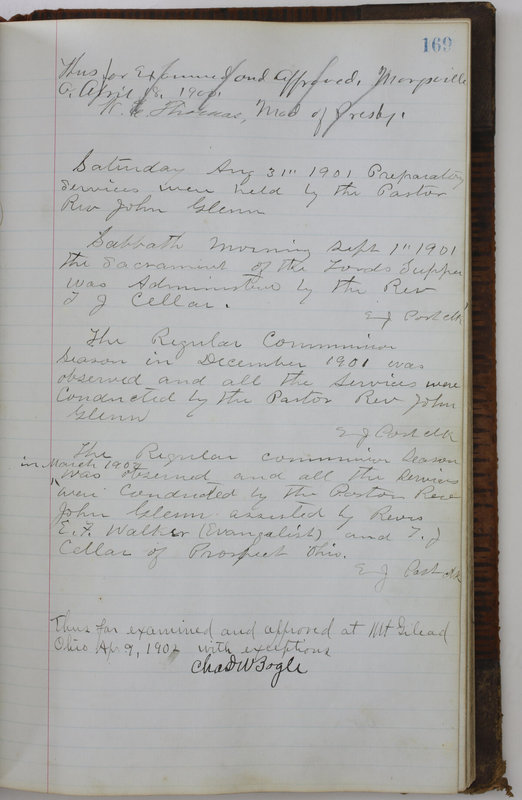 169
Thus far Examined and Approved, Marysville
O. April 18. 1901.
Thomas, Mod of Presby.
Saturday Aug 31" 1901 Preparatory
Services were held by the Pastor
Rev John Glenn
Sabbath Morning Sept 1" 1901
the Sacrament of the Lords Supper
was Administered by the Rev
T J Cellar.
E J Post clk
The Regular Communion
Season in December 1901 was
observed and all the Services were
Conducted by the Pastor Rev John
Glenn
E J Post clk
The Regular Communion Season
in March 1902
was observed and all the Services
were Conducted by the Pastor Rev
John Glenn assisted by Revs
E. F. Walker (Evangelist) and T. J
Cellar of Prospect Ohio.
E J Post clk
Thus far examined and approved at Mt Gilead
Ohio Apr 9, 1902 with exceptions
Chas W Fogle